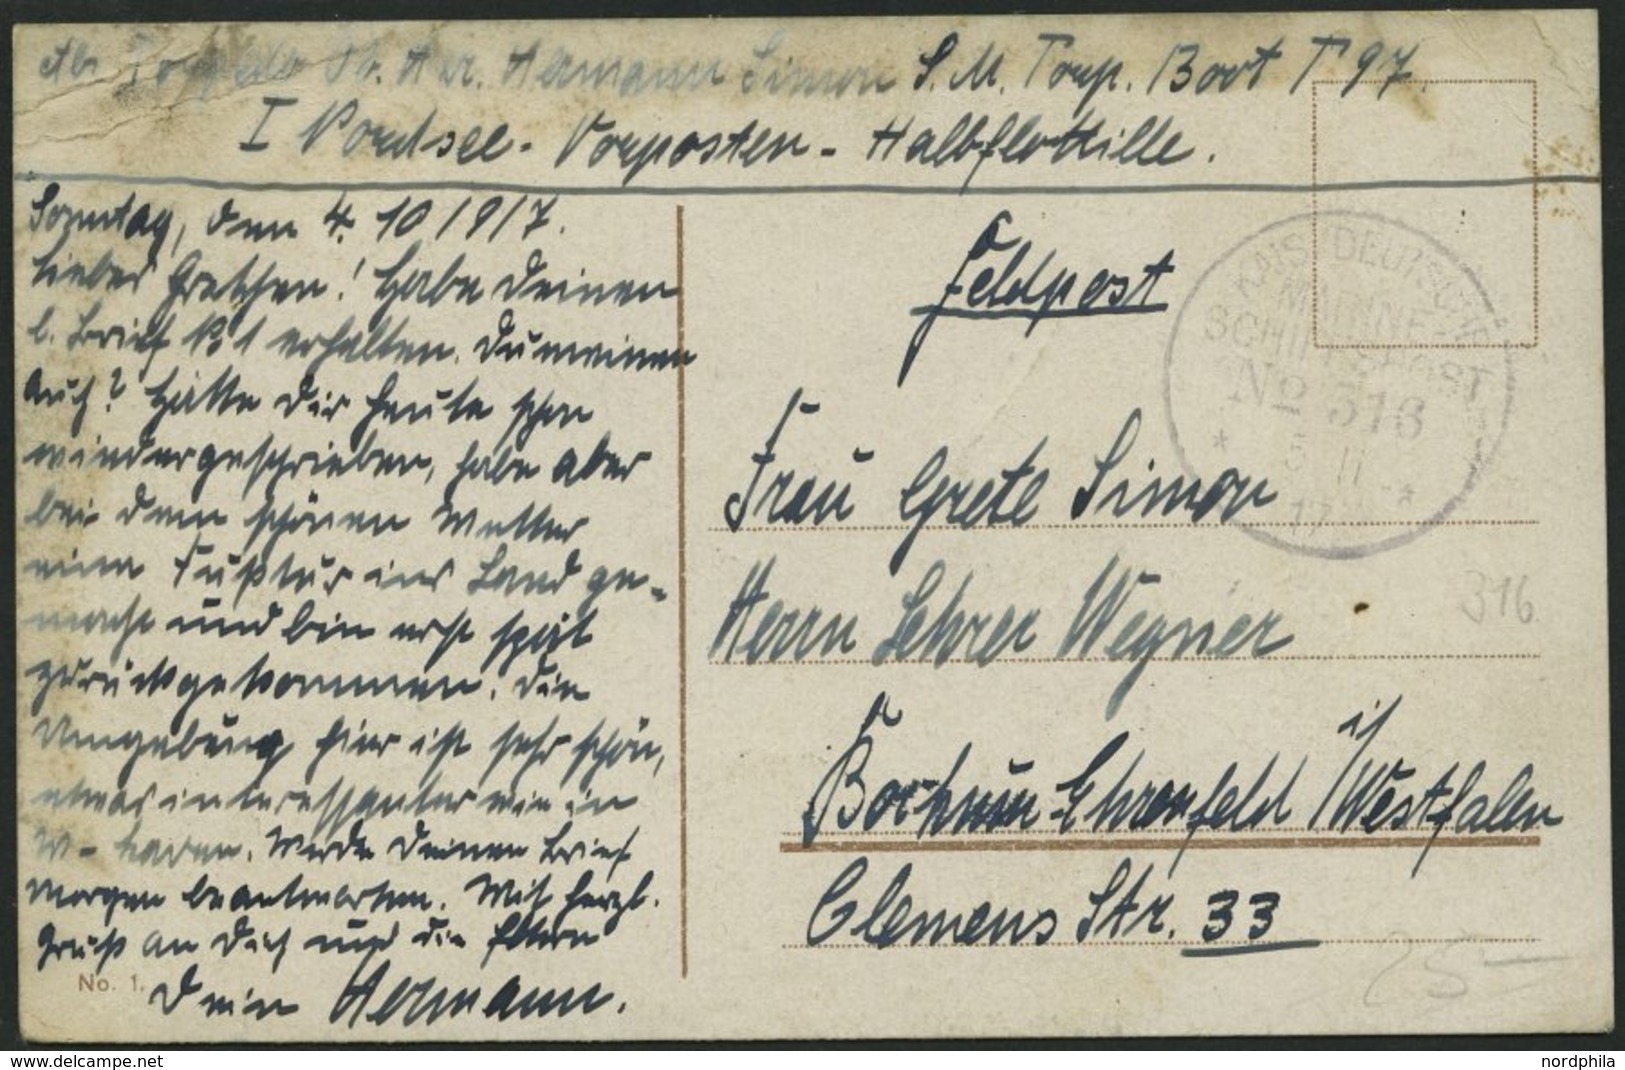 Abs. Torpedo Hermann Simon S. M. Torp. Boot T 97.
I Nordsee - Vorposten - Halbflottille.
Sonntag, den 4. 10 1917.
Liebes Gretchen! Habe Deinen
l. Brief N 1 erhalten. Du meinen
auch? Hätte Dir heute schon
wiedergeschrieben, habe aber
bei dem schönen Wetter
eine Fußtur ins Land ge-
macht und bin erst spät
zurückgekommen. Die
Umgebung hier ist sehr schön,
etwas interessanter wie in
W-haven. Werde Deinen Brief
morgen beantworten. Mit herzl.
Gruß an Dich und die Eltern
Dein Hermann.
No. 1.
Feldpost
KAIS. DEUTSCHE
MARINE-
SCHIFFSPOST
No 316
* 5 11 *
17
Frau Grete Simon
Herrn Lehrer Wegner
316
Bochum Ehrenfeld i/Westfalen
Clemens Str. 33
25 -
www.delcampe.net
nordphila